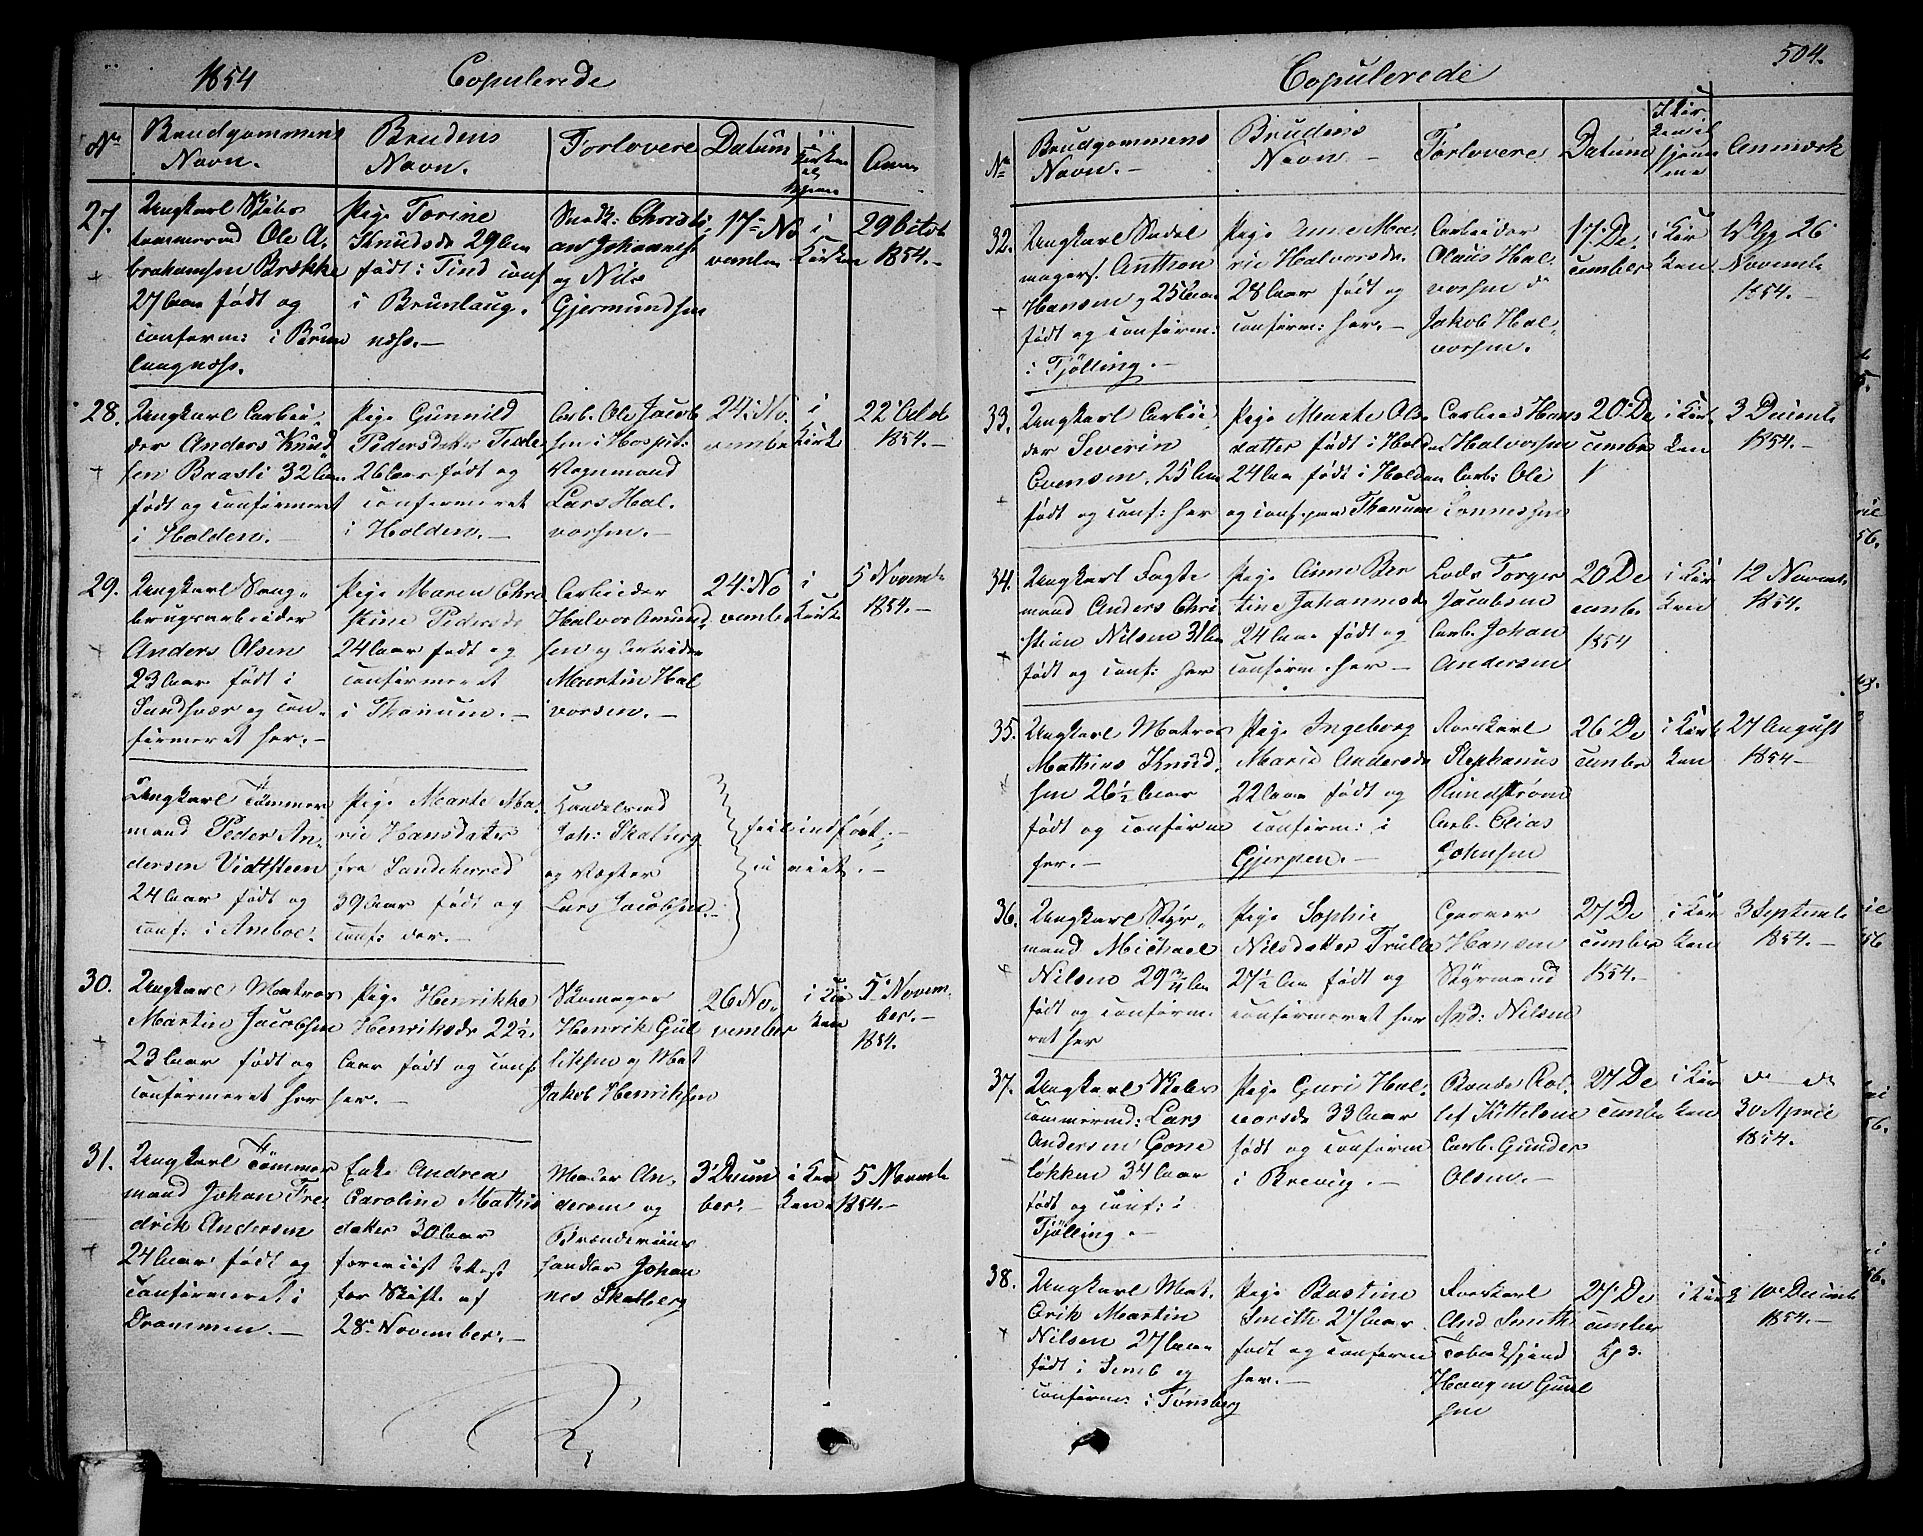 1854
Copulerede
No
Brudgommens
Navn.
Brudens
Navn.
Forlovere
Datum
i
Kirken
Anm
27.
Ungkarl Skibs
tømmermd Ole A.
brahamsen Brekke
27 Aar født og
conferm: i Brun
laugnæss.
Pige Torine
Knudsdr 29 Aar
født i Tind conf
i Brunlaug.
næss.-
Snedk: Christi
an Johannes
og Nils
Gjermundsen
17 No
vember
i
Kirken
29 Octob
1854.-
28.
Ungkarl Arbei
der Anders Knud
sen Baasli 32 Aar
født og confermeret
i Holden.-
Pige Gunnild
Pedersdatter
26 Aar født og
confermeret
i Holden.-
Arb. Ole Jacob
sen i Hospit:
Vognmand
Lars Hal.
vorsen.-
24. No.
vember
i
Kirk
22 Octob
1854.-
29.
Ungkarl
brugsarbeider
Anders Olsen
23 Aar født i
Sandsvær og con.
firmeret her.-
Pige Maren Chri
stine Pedersdr
24 Aar født og
confermeret
i Thanum.-
Arbeider
Halvor Amund
sen og Arbeider
Martin Hal
vorsen.-
24. No
vember
i
Kirke
5 Novemb
1854.-
Ungkarl Tømmer
mand Peder An.
dersen Vidtsteen
24 Aar født og
conf: i Amboe.
Pige Marte Ma.
rie Hansdatter
fra Sandeherred
39 Aar født og
conf: der.-
Handelsmd
Joh: Skalberg
og Vægter
Lars Jacobsen.-
feilindført.-
30.
Ungkarl Matros
Martin Jacobsen
23 Aar født og
confermeret her
Pige Henrikke
Henriksdr 22½.
Aar født og conf
her.-
Skomager
Henrik Gul
liksen og Mat
Jakob Henriksen
26 No.
vember
i Kir
ken
5 Novem.
ber.-
1854.
31.
Ungkarl Tømmer
mand Johan Fre.
drik Andersen
24 Aar født og
confermeret i
Drammen.-
Enke Andrea
Caroline Mathis
datter 30 Aar
foreviist Attest
for Skifte af
28. November.-
An.
dersen og
handler Johan
nes Skalberg
3 Decem
ber.-
i Kir
ken
5 Novemb
1854.-
504.
Copulerede
No
Brudgommens
Navn.-
Brudens
Navn.-
Forlovere
Datum
I Kir
ken el
hjem
me
Anmærk
32.
Ungkarl Sadel
magers. Anthon
Hansen 25 Aar
født og conferm:
i Tjølling.-
Pige Anne Ma.
rie Halvorsdr
28 Aar født og
conferm: her.-
Arbeider
Claus Hal.
vorsen
Jakob Hal.
vorsen.
17. De.
cember
i Kir
ken
26
Novemb
1854.-
33.
Ungkarl Arbei.
der Severin
Evensen, 25 Aar
født og conf: her
Pige Marte Ols
datter født i Hold
24 Aar født i Holden
og conf. Thanum
Hans
Halvorsen
Arb: Ole
Tønnessen
20. De
cember
i Kir
ken
3 Decemb
1854.-
34.
Ungkarl Fagte
mand Anders Chri
stian Nilsen 31 Aar
født og conf: her
Pige Anne Ber
tine Johannesdr
24 Aar født og
conferm. her-
Lods Torger
Jacobsen
Arb. Johan
Andersen
20 De
cemb.
1854
i Kir
ken
12 Novemb
1854.
35.
Ungkarl Matros
Mathias Knud.
sen 26½ Aar
født og conferm
her.-
Pige Ingeborg
Marie Andersdr
22 Aar født og
conferm: i
Gjerpen.-
Rorskarl
Stephanus
Rundstrøm
Arb. Elias
Johnsen
26 De
cember
i Kir
ken
27 August
1854-
36.
Ungkarl Styr.
mand Michael
Nilsen 29 Aar
født og conferm
ret her
Pige Sophie
Nilsdatter Trulle
27½ Aar født og
confermeret her
Garver
Hansen
Styrmand
And: Nilsen
27 De
cember
1854.-
i Kir
ken
3 Septemb
1854.-
37.
Ungkarl Skibs
tømmermd: Lars
Andersen Gone
løkken 34 Aar
født og conf: i
Tjølling.-
Pige Guri Hal.
vorsdr 33 Aar
født og conferm
i Brevig.-
Bonde Rol.
lef Kittelsen
Arb. Gunder
Olsen.-
27 De
cember
i Kir
ken
30 April
1854.-
38.
Ungkarl Mat.
Erik Martin
Nilsen 27 Aar
født i Semb og
conferm: i Tønsberg
Pige Bastine
Smith 27 Aar
født og conferm
her.-
Rorskarl
And Smith
Haagen Guul
sen
27. De
cember
i Kirk
10 Decemb
1854.-